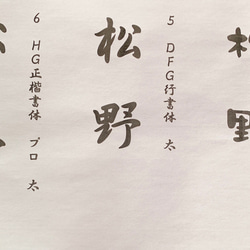 5 DFG行書体 太
松野
6 HG正楷書体 プロ 太